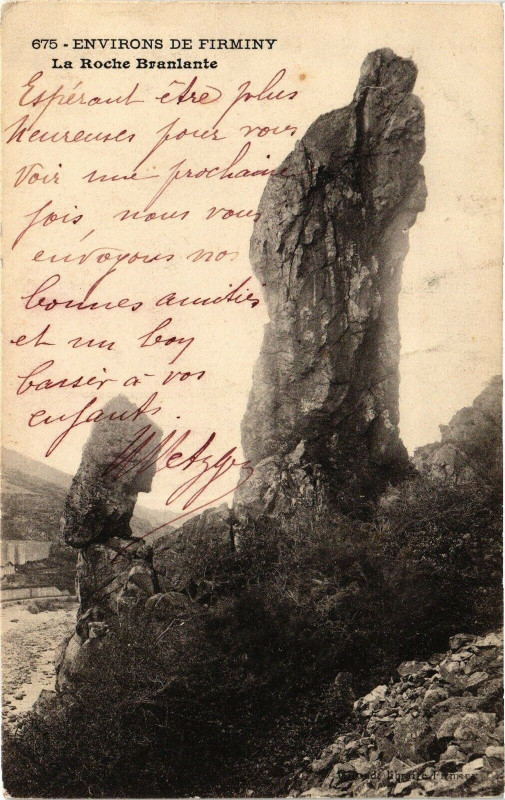 675 - ENVIRONS DE FIRMINY
La Roche Branlante
Espérant être plus
heureuses pour vous
voir une prochaine
fois, nous vous
envoyons nos
bonnes amitiés
et un bon
baiser à vos
enfants.
libraire, Firminy